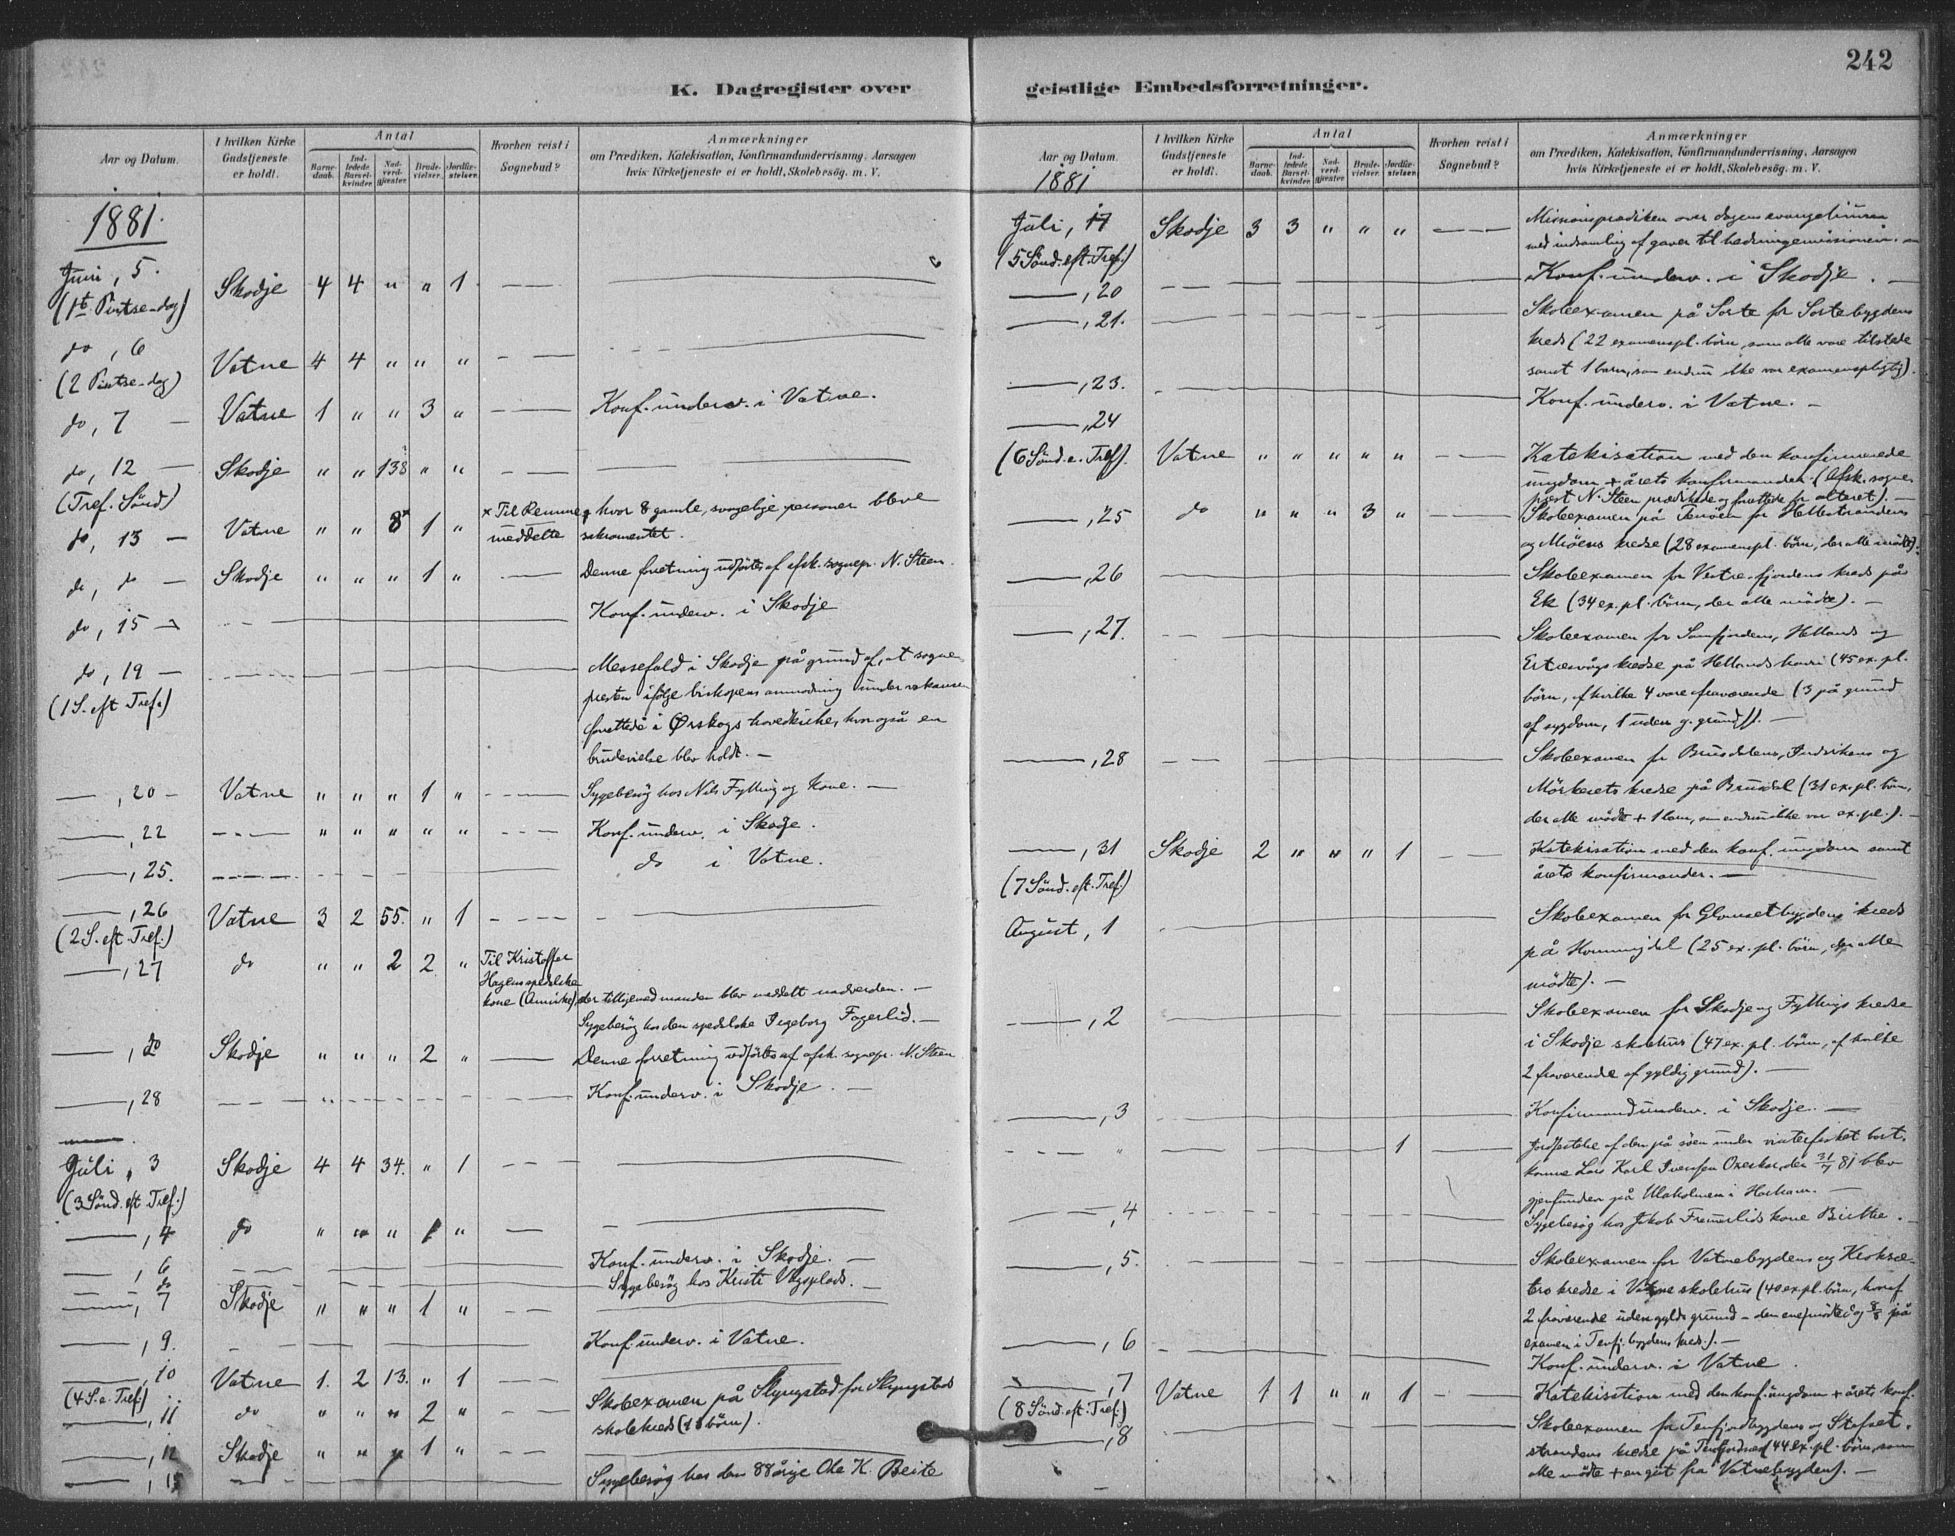 242
K. Dagregister over
geistlige Embedsforretninger.
Aar og Datum.
I hvilken Kirke Gudstjeneste er holdt.
Antal
Barne-daab.
Ind-ledede Barsel-kvinder.
Nad-verd-gjester.
Brude-vielser.
Jordfæ-stelser.
Hvorhen reist i Sognebud?
Anmærkninger
om Prædiken, Katekisation, Konfirmandundervisning, Aarsagen
hvis Kirketjeneste ei er holdt, Skolebesøg. m. V.
1881.
Juni, 5. Skodje 4 4 " " 1
(1ste Pintse-dag)
do, 6 Vatne 4 4 " " "
(2 Pintse-dag)
do, 7 Vatne 1 " " 3 " Konf. underv. i Vatne.
do, 12 Skodje " " 138 " "
(Tref. Sønd)
do, 13 Vatne " " 8× 1 " × Til Remme, hvor 8 gamle, svagelige personer bleve
meddelte sakramentet.
do, do Skodje " " " 1 " Denne forretning udførtes af afsk. sognepr. N. Steen.
do, 15 Konf. underv. i Skodje
do, 19 Messefald i Skodje på grund af, at sogne-
(1 S. eft Tref.) presten ifølge biskopens anmodning under vakansen
forrettede i Ørskogs hovedkirke, hvor også en
brudevielse blev holdt. —
—, 20 Vatne " " " 1 " Sygebesøg hos Nils Fylling og Kone. —
—, 22 " " " " " Konf. underv. i Skodje.
—, 25. do i Vatne.
—, 26 Vatne 3 2 55. " 1
(2 S. eft. Tref.)
—, 27 do " " 2 2 " Til Kristoffer
Hagens spedalske
kone der tilligemed manden blev meddelt nadverden. —
Sygebesøg hos den spedalske Ingeborg Fagerlid. —
—, do Skodje " " " 2 " Denne forretning udførtes af afsk. sognepr. N. Steen
—, 28 Konf. underv. i Skodje. —
Juli, 3 Skodje 4 4 34. " 1
(3 Sønd. eft Tref.)
—, 4 do " " " 1 "
—, 6 Konf. underv. i Skodje. —
do Sygebesøg hos Kristi
—, 7 Skodje " " " 1 "
—, 9. Konf. underv. i Vatne.
—, 10 Vatne 1. 2 13. " 1
(4 S. e. Tref.)
—, 11 do " " " 2 " Skoleexamen på Slyngstad for Slyngstad
skolekreds (18 børn).
—, 12 Skodje " " " 1 "
—, 13 Sygebesøg hos den 88 årige Ole K. Beite
Aar og Datum.
1881
I hvilken Kirke Gudstjeneste er holdt.
Antal
Barne-daab.
Ind-ledede Barsel-kvinder.
Nad-verd-gjester.
Brude-vielser.
Jordfæ-stelser.
Hvorhen reist i Sognebud?
Anmærkninger
om Prædiken, Katekisation, Konfirmandundervisning, Aarsagen
hvis Kirketjeneste ei er holdt, Skolebesøg. m. V.
Juli, 17 Skodje 3 3 " " " Missionsprædiken over dagens evangelium
(5 Sønd. eft. Tref.) med indsamling af gaver til hedningemissionen. —
—, 20 Konf. underv. i Skodje. —
—, 21. Skoleexamen på Sorte for Sortebygdens
kreds (22 examenspl. børn, som alle vare tilstede
samt 1 barn, som endnu ikke var examenspligtig).
—, 23. Konf. underv. i Vatne. —
—, 24 Vatne " " " " " Katekisation med den konfirmerede
(6 Sønd. e. Tref). ungdom + årets konfirmander. (Afsk. sogne-
prest N. Steen prædikede og forrettede for alteret). —
—, 25 do " " " 3 " Skoleexamen på for Hellestrandens
og kredse (28 examenspl. børn, der alle mødte).
—, 26 Skoleexamen for Vestrefjordens kreds på
Ek (34 ex. pl. børn, der alle mødte). —
—, 27. Skoleexamen for Hellands og
kredse på Hellandshavn (45 ex. pl.
børn, af hvilke 4 vare fraværende (3 på grund
af sygdom, 1 uden g. grund)). —
—, 28 Skoleexamen for Brusdalens, og
kredse på Brusdal (31 ex. pl. børn,
der alle mødte + 1 barn, som endnu ikke var ex. pl.). —
—, 31 Skodje 2 " " " 1 Katekisation med den konf. ungdom samt
(7 Sønd. eft. Tref.) årets konfirmander. —
August, 1 Skoleexamen for Glomsetbygdens kreds
på (25 ex. pl. børn, der alle
mødte). —
—, 2 Skoleexamen for Skodje og Fyllings kredse
i Skodje skolehus (47 ex. pl. børn, af hvilke
2 fraværende af gyldig grund). —
—, 3 Konfirmandunderv. i Skodje. —
" 1 Jordfæstelse af den på søen under vinterfisket bort-
komne Lars Karl Iversen der 31/7 81 blev
gjenfunden på Ulaholmen i Harham. —
—, 4 Sygebesøg hos Jakob Fremerlids kone Birthe. —
—, 5. Skoleexamen for Vatnebygdens og
kredse i Vatne skolehus (40 ex. pl. børn, hvoraf
2 fraværende uden gyldig grund — den ene mødte dog 8/8 på
examen i Tenfj. bygdens kreds). —
—, 6 Konf. underv. i Vatne.
—, 7 Vatne 1 1 " " 1 Katekisation med den konf. ungdom + årets konf.
(8 Sønd. eft. Tref.)
—, 8 Skoleexamen for Tenfjordbygdens og
strandens kredse på (44 ex. pl. børn, som
alle mødte + en gut fra Vatnebygden). —